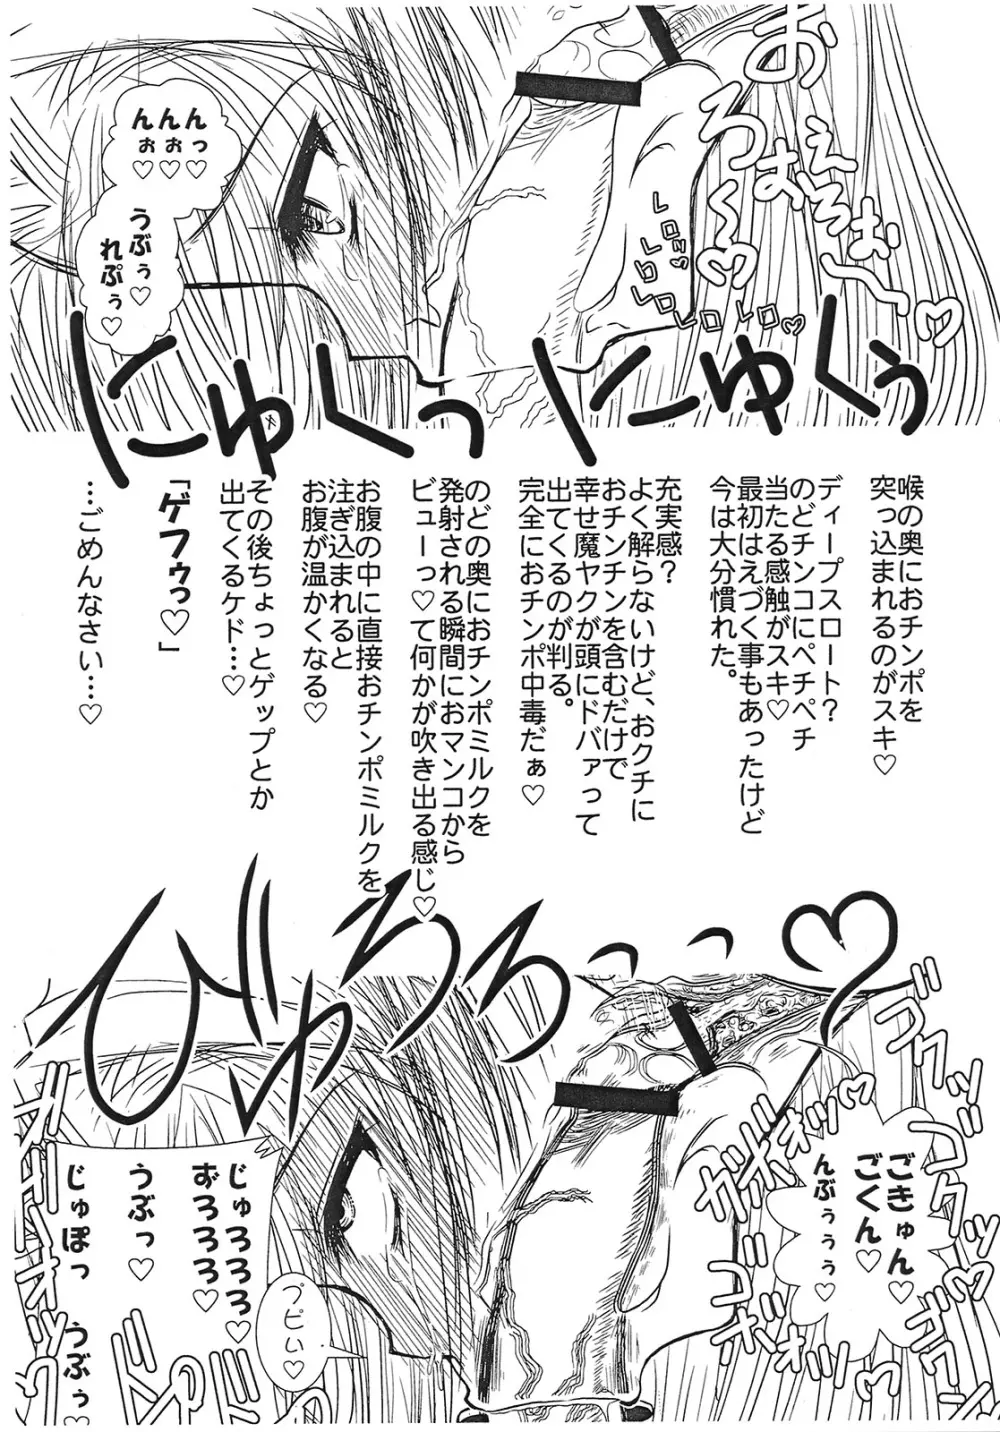 おろぉぇろぉぉ～～♡
レロッレロレロレロ♡
んっ♡
んぉっ♡
んぉ♡
うぶぅ♡
れぷぅ♡
にゅくっにゅくぅ
喉の奥におチンポを
突っ込まれるのがスキ♡
ディープスロート？
のどチンコにペチペチ
当たる感触がスキ♡
最初はえづく事もあったけど
今は大分慣れた。
充実感？
よく解らないけど、おクチに
おチンチンを含むだけで
幸せ魔ヤクが頭にドバァって
出てくるのが判る。
完全におチンポ中毒だぁ♡
のどの奥におチンポミルクを
発射される瞬間におマンコから
ビューっ♡て何かが吹き出る感じ♡
お腹の中に直接おチンポミルクを
注ぎ込まれると
お腹が温かくなる♡
その後ちょっとゲップとか
出てくるケド…♡
「ゲフゥっ♡」
…ごめんなさい…♡
びゅろろっっ♡
ゴクッゴクッ♡
ごきゅん♡
ごくん♡
んぶぅぅぅ♡
プビぃ♡
じゅろろろ♡
ずろろろろ♡
うぶっ♡
じゅぽっ
うぶぅ♡